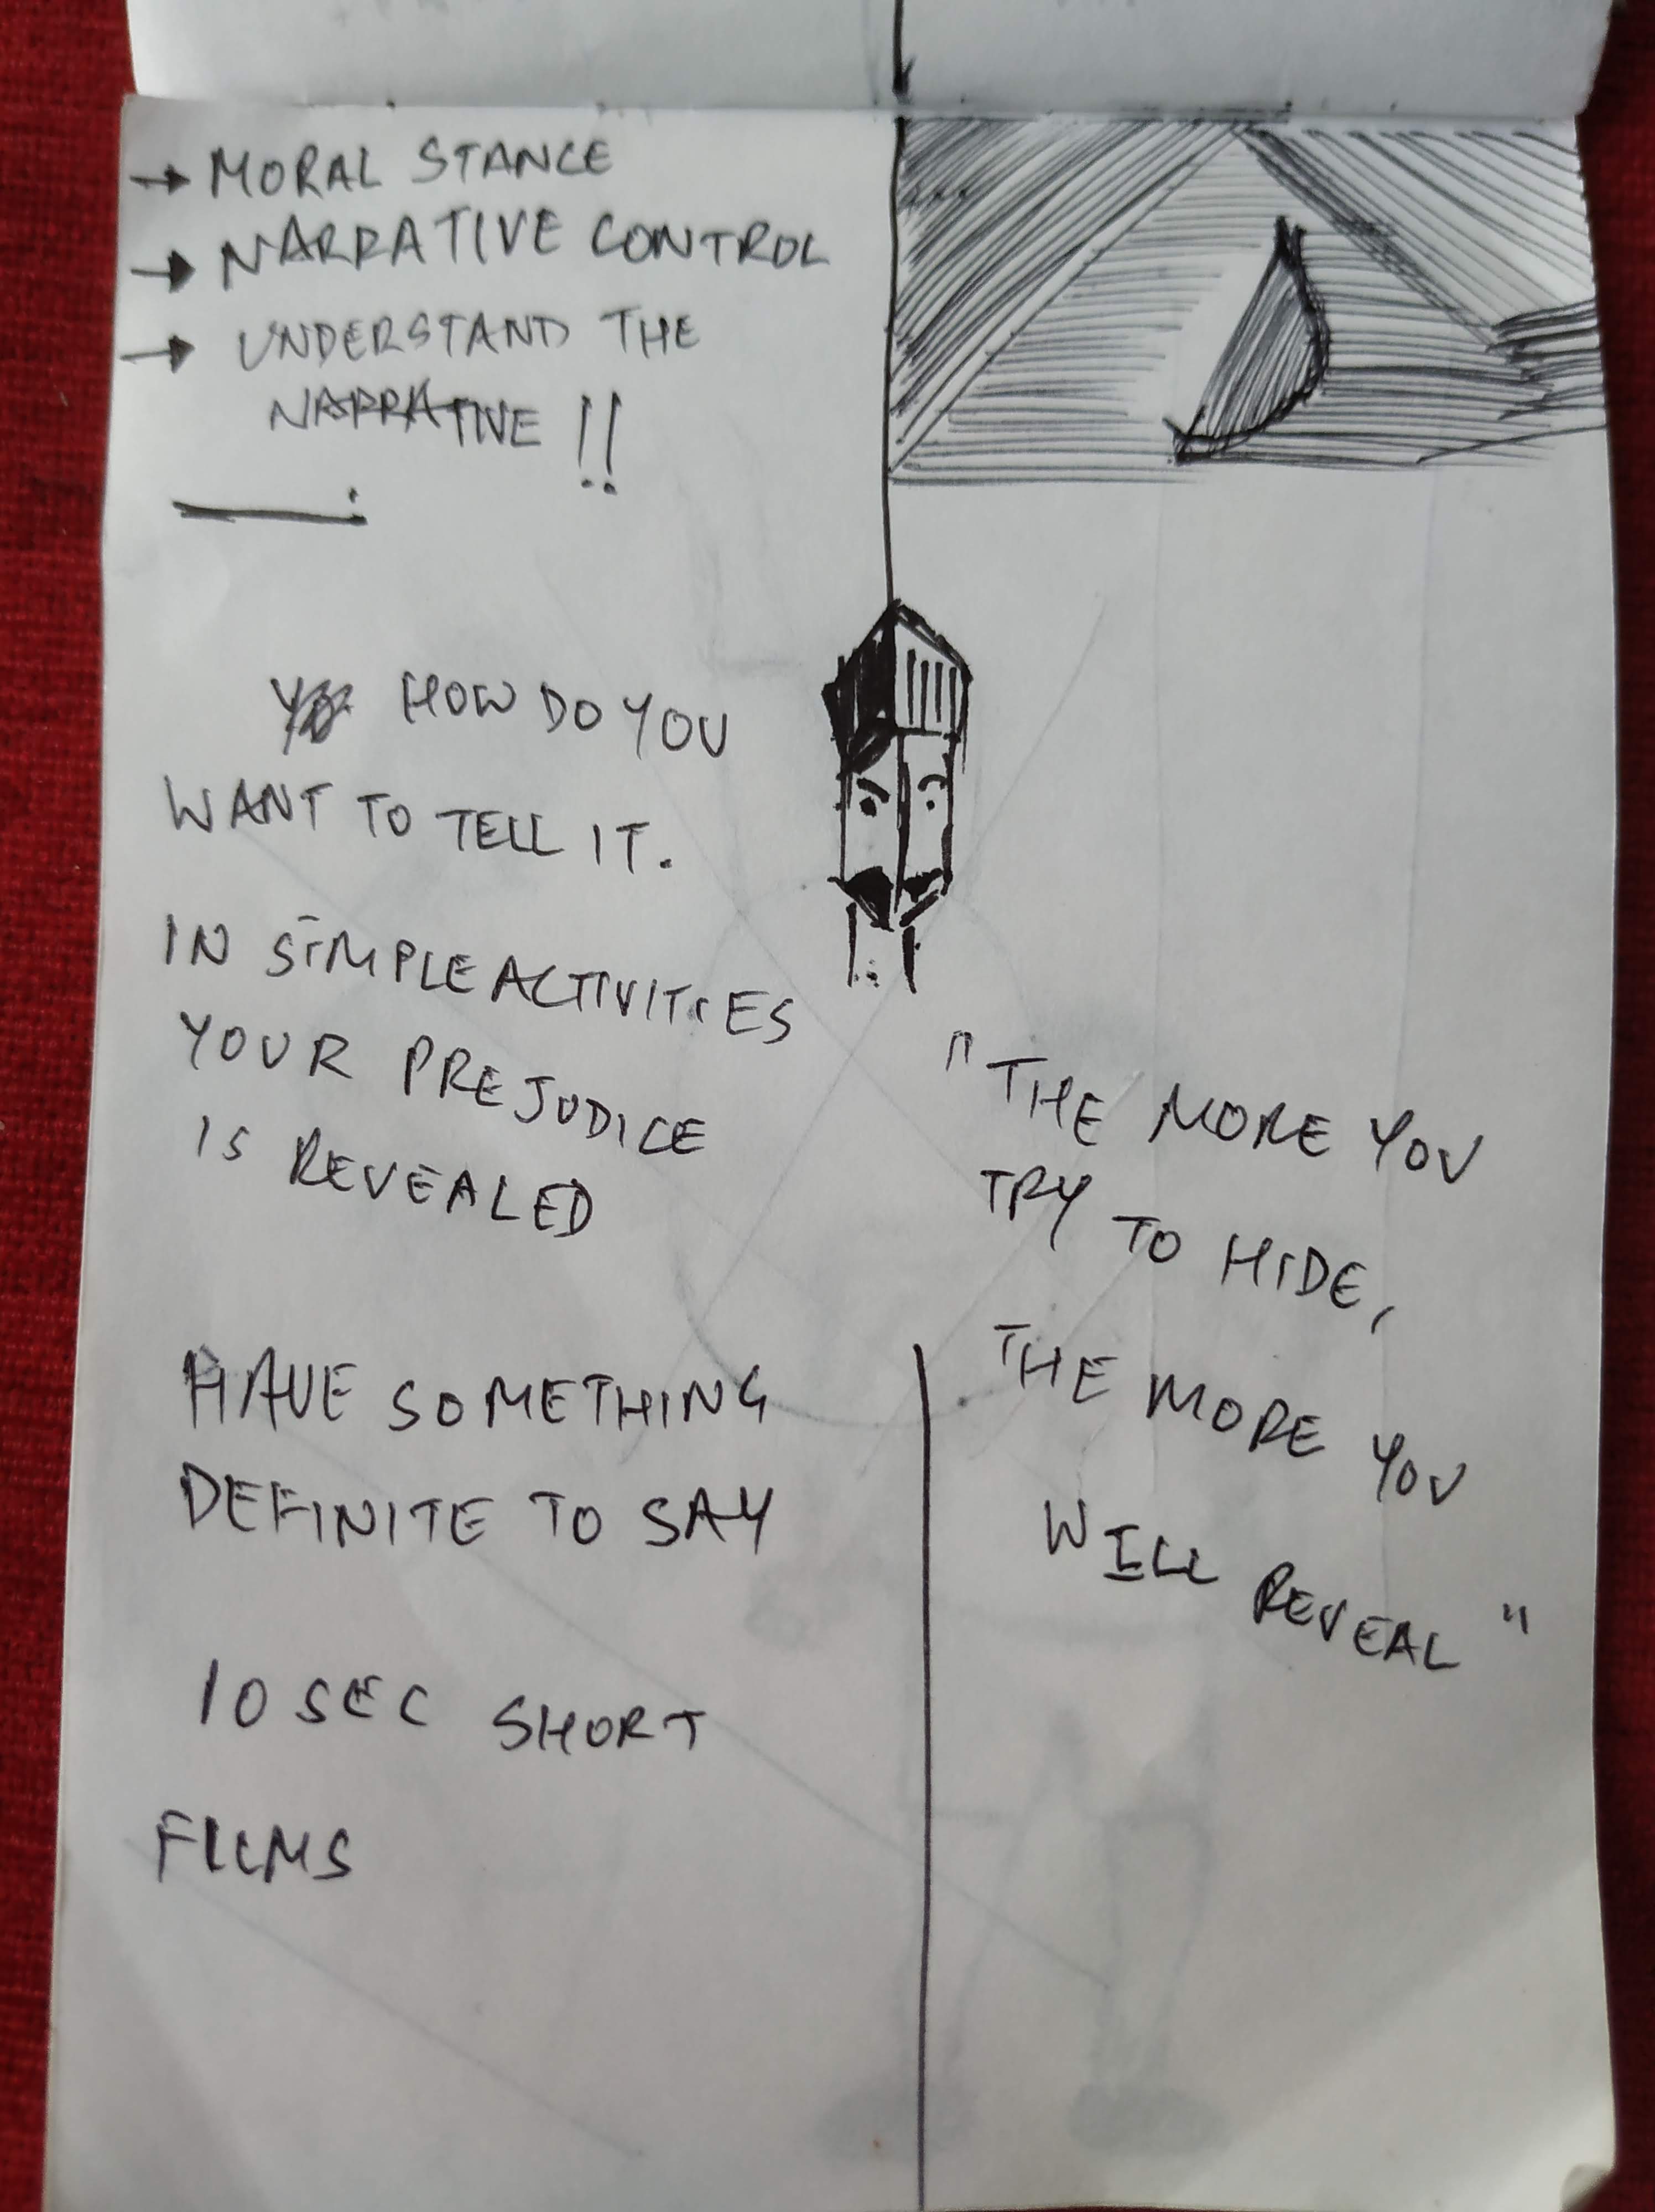 → MORAL STANCE
→ NARRATIVE CONTROL
→ UNDERSTAND THE
NARRATIVE !!
HOW DO YOU
WANT TO TELL IT.
IN SIMPLE ACTIVITIES
YOUR PREJUDICE
IS REVEALED
HAVE SOMETHING
DEFINITE TO SAY
10 SEC SHORT
FILMS
"THE MORE YOU
TRY TO HIDE,
THE MORE YOU
WILL REVEAL"